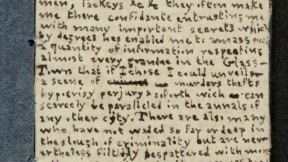 men, Lackeys &c & they often make
me there confidante entrusting me
with many important secrets which
by degrees has enabled me to amass such
a quantity of information respecting
almost every grandee in the Glass-
Town that if I chose I could unveil
a scene of murders thefts
hypocrisy perjury & so forth which
scarcely be paralleled in the annals of
any other city. There are also many
who have not waded so far or deep in
the slough of criminality but are nev-
ertheless filthily bespattered with mire